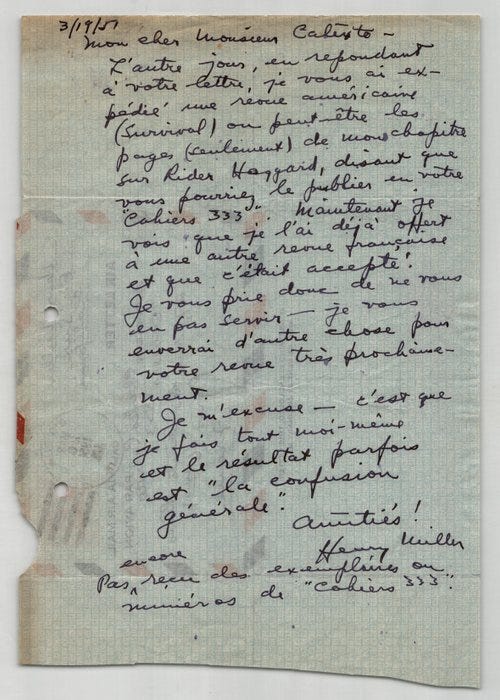 3/19/51
Mon cher Monsieur Calixto –
L'autre jour, en repondant
à votre lettre, je vous ai ex-
pédié une revue américaine
(Survival) ou peut-être les
pages (seulement) de mon chapitre
sur Rider Haggard, disant que
vous pourriez le publier en votre
"Cahiers 333". Maintenant je
vois que je l'ai déjà offert
à une autre revue française
et que c'était accepté!
Je vous prie donc de ne vous
en pas servir — je vous
enverrai d'autre chose pour
votre revue très prochaine-
ment.
Je m'excuse — c'est que
je fais tout moi-même
et le résultat parfois
est "la confusion
générale".
Amitiés!
Henry Miller
encore
Pas ^ reçu des exemplaires ou
numéros de "Cahiers 333".